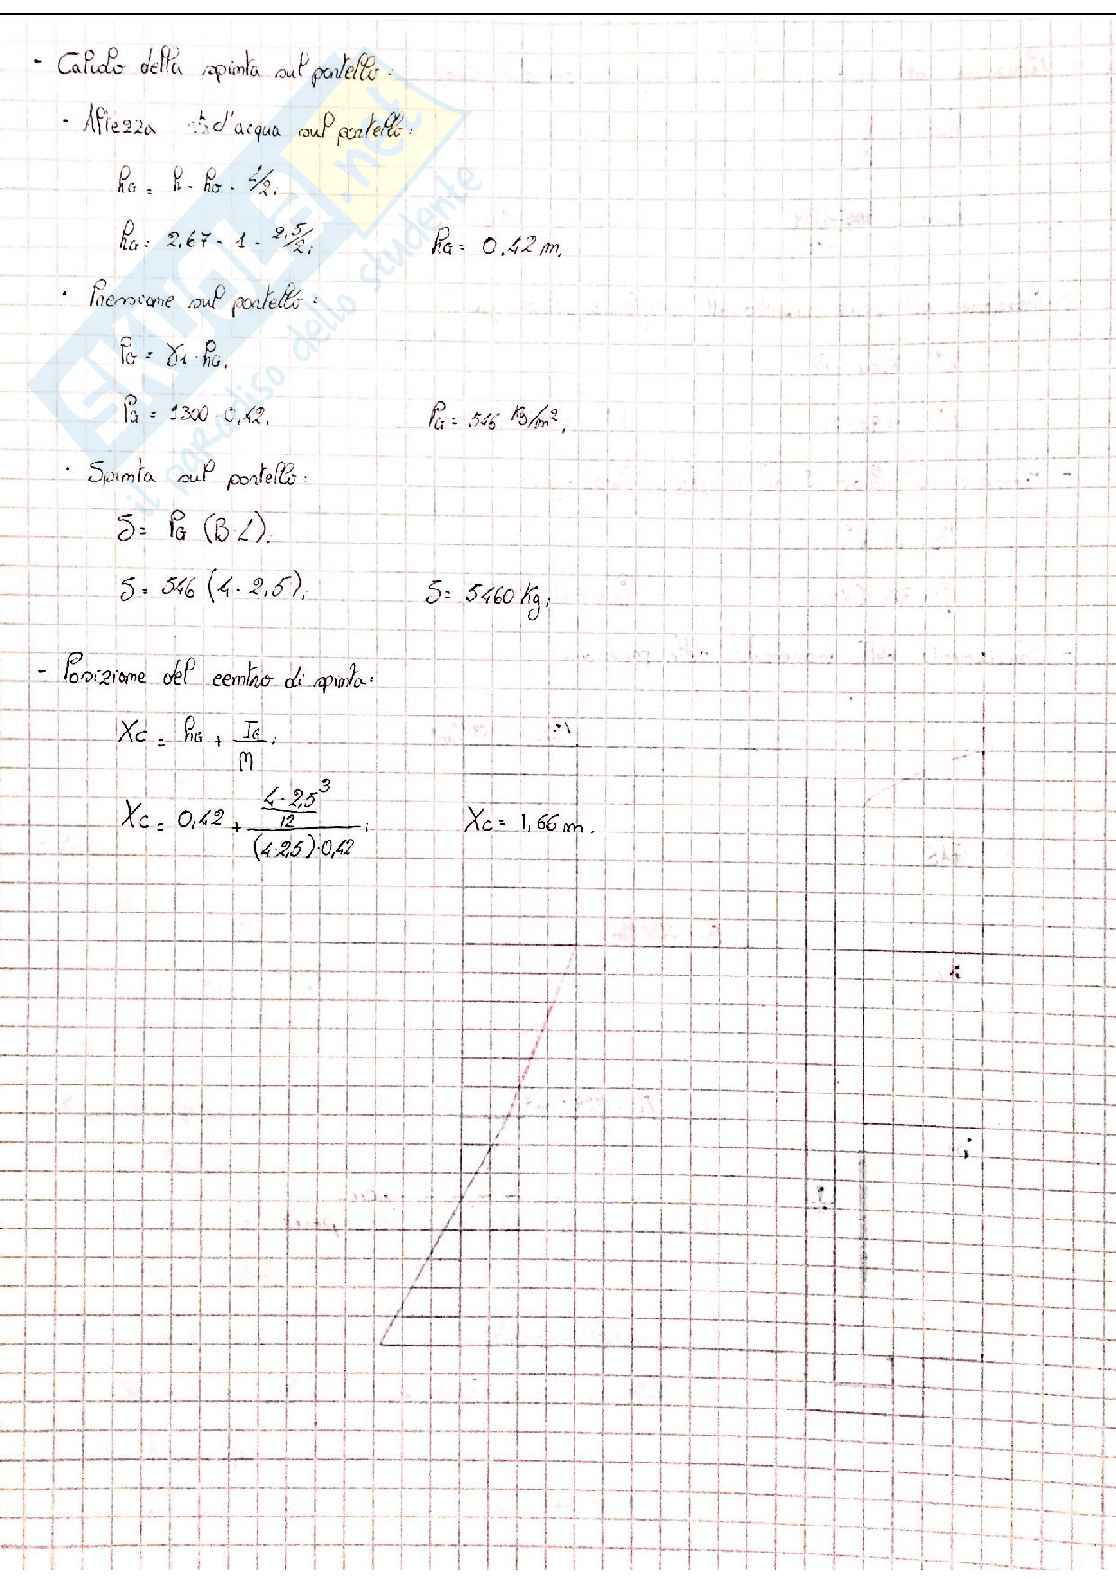 - Calcolo della spinta sul portello:
· Altezza d'acqua sul portello:
hG = h - h0 - L/2;
hG = 2,67 - 1 - 2,5/2;    hG = 0,42 m;
· Pressione sul portello:
PG = γ1 · hG;
PG = 1300 · 0,42;    PG = 546 Kg/m²;
· Spinta sul portello:
S = PG (B·L);
S = 546 (4 · 2,5);    S = 5460 Kg;
- Posizione del centro di spinta:
XC = hG + IG/M;
XC = 0,42 + (4·2,5³/12)/((4·2,5)·0,42);    XC = 1,66 m.
SKUOLA.net
il paradiso dello studente